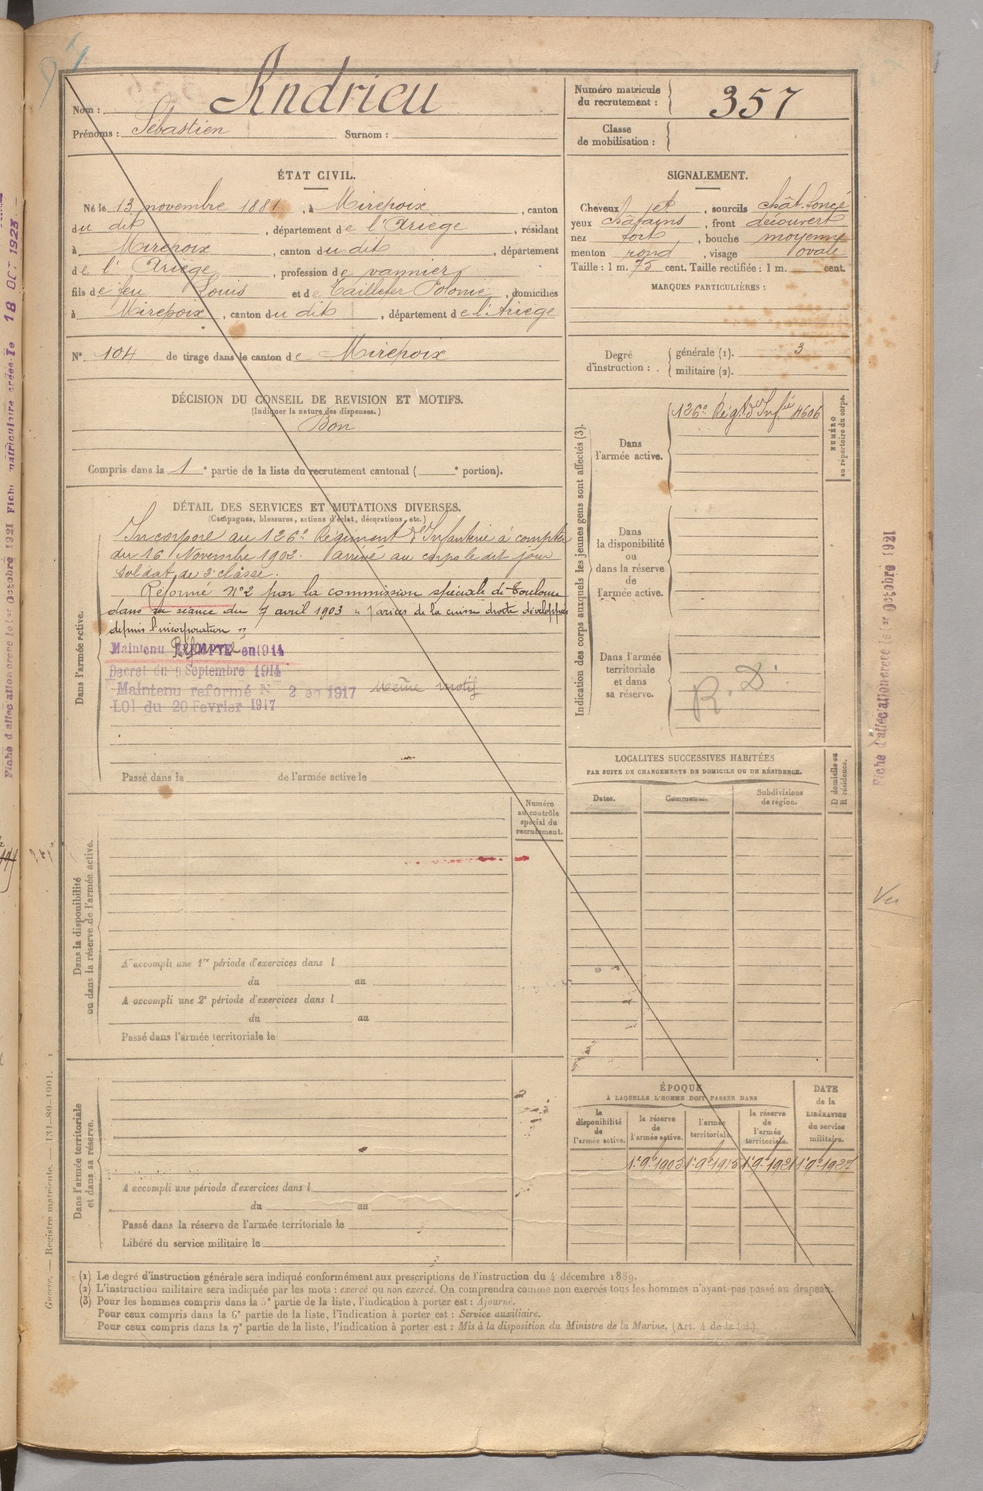 Nom : Andrieu
Prénoms : Sébastien Surnom :
Numéro matricule du recrutement : 357
Classe de mobilisation :
ÉTAT CIVIL.
Né le 13 novembre 1881, à Mirepoix, canton
du dit, département de l'Ariège, résidant
à Mirepoix, canton du dit, département
de l'Ariège, profession de vannier
fils de feu Louis et de Tailleter Colome, domiciliés
à Mirepoix, canton du dit, département de l'Ariège
N° 104 de tirage dans le canton de Mirepoix
SIGNALEMENT.
Cheveux et, sourcils chât. foncé
yeux châtains, front découvert
nez fort, bouche moyenne
menton rond, visage ovale
Taille : 1 m. 75 cent. Taille rectifiée : 1 m. cent.
MARQUES PARTICULIÈRES :
Degré d'instruction : générale (1). 3
militaire (2).
DÉCISION DU CONSEIL DE REVISION ET MOTIFS.
(Indiquer la nature des dispenses.)
Bon
Compris dans la 1e partie de la liste du recrutement cantonal ( e portion).
DÉTAIL DES SERVICES ET MUTATIONS DIVERSES.
(Campagnes, blessures, actions d'éclat, décorations, etc.)
Dans l'armée active.
Incorporé au 126e Régiment d'Infanterie à compter
du 16 Novembre 1902. arrivé au corps le dit jour
soldat de 2e classe.
Réformé N°2 par la commission spéciale de Toulouse
dans sa séance du 7 avril 1903 de la cuisse droite développées
depuis l'incorporation "
Maintenu EXEMPTÉ en 1914
Réformé
Décret du 9 Septembre 1914
Maintenu réformé N° 2 en 1917 même motif
Loi du 20 Février 1917
Passé dans la de l'armée active le
Indication des corps auxquels les jeunes gens sont affectés (3).
Dans l'armée active.
126e Régt d'Infie 4606
NUMÉRO au répertoire du corps.
Dans la disponibilité ou dans la réserve de l'armée active.
Dans l'armée territoriale et dans sa réserve.
R. D.
LOCALITÉS SUCCESSIVES HABITÉES
PAR SUITE DE CHANGEMENTS DE DOMICILE OU DE RÉSIDENCE.
Dates. Communes. Subdivisions de région. D domicile ou R résidence.
Numéro au contrôle spécial du recrutement.
Dans la disponibilité ou dans la réserve de l'armée active.
A accompli une 1re période d'exercices dans l
du au
A accompli une 2e période d'exercices dans l
du au
Passé dans l'armée territoriale le
ÉPOQUE
À LAQUELLE L'HOMME DOIT PASSER DANS
la disponibilité de l'armée active.
la réserve de l'armée active.
l'armée territoriale.
la réserve de l'armée territoriale.
DATE de la LIBÉRATION du service militaire.
1r 9e 1905 1r 9e 1915 1r 9e 1921 1r 9e 1927
Dans l'armée territoriale et dans sa réserve.
A accompli une période d'exercices dans l
du au
Passé dans la réserve de l'armée territoriale le
Libéré du service militaire le
(1) Le degré d'instruction générale sera indiqué conformément aux prescriptions de l'instruction du 4 décembre 1889.
(2) L'instruction militaire sera indiquée par les mots : exercé ou non exercé. On comprendra comme non exercés tous les hommes n'ayant pas passé au drapeau.
(3) Pour les hommes compris dans la 5e partie de la liste, l'indication à porter est : Ajourné.
Pour ceux compris dans la 6e partie de la liste, l'indication à porter est : Service auxiliaire.
Pour ceux compris dans la 7e partie de la liste, l'indication à porter est : Mis à la disposition du Ministre de la Marine. (Art. 4 de la loi.)
Fiche d'affectation créée le 1er Octobre 1921
Vu
Fiche d'affectation créée le 1er Octobre 1921 Fiche matriculaire créée le 18 OCT 1923
Guerre. — Registre matricule. — 131-80-1901.